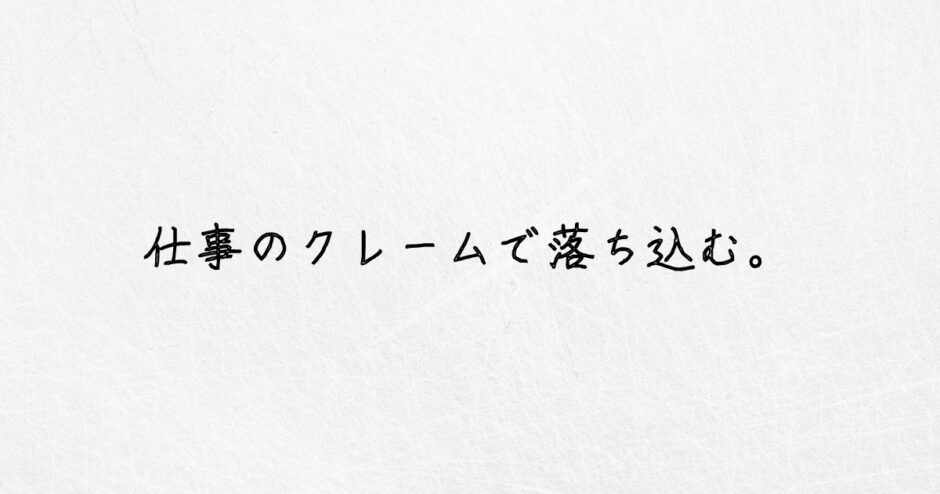 仕事のクレームで落ち込む。